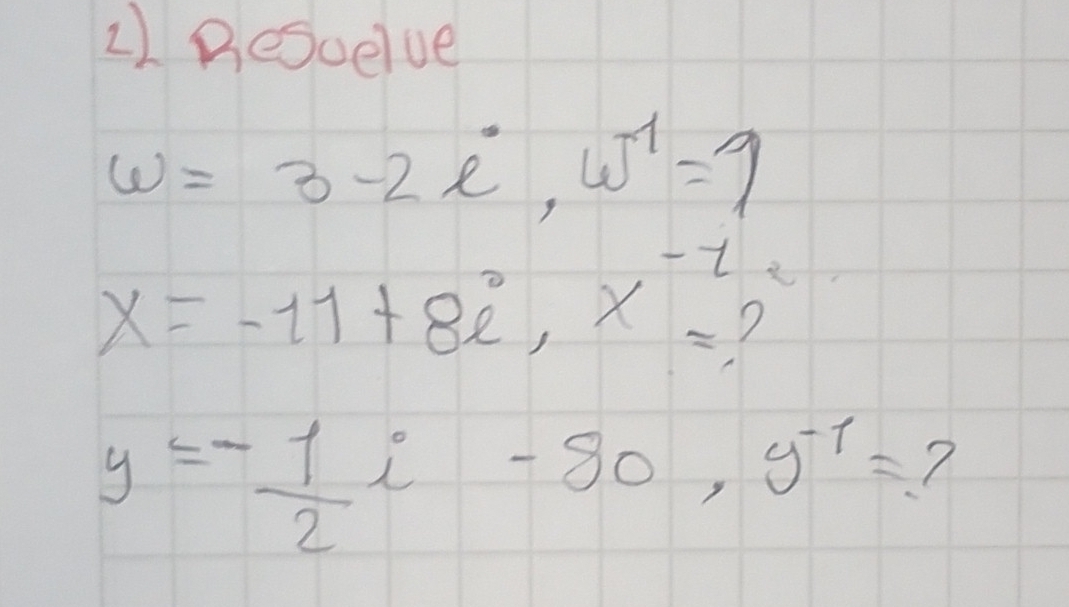 2) Resuelve
w = 3 - 2i, w⁻¹ = ?
x = -11 + 8i, x⁻¹ = ?
y = -1/2 i - 80, y⁻¹ = ?